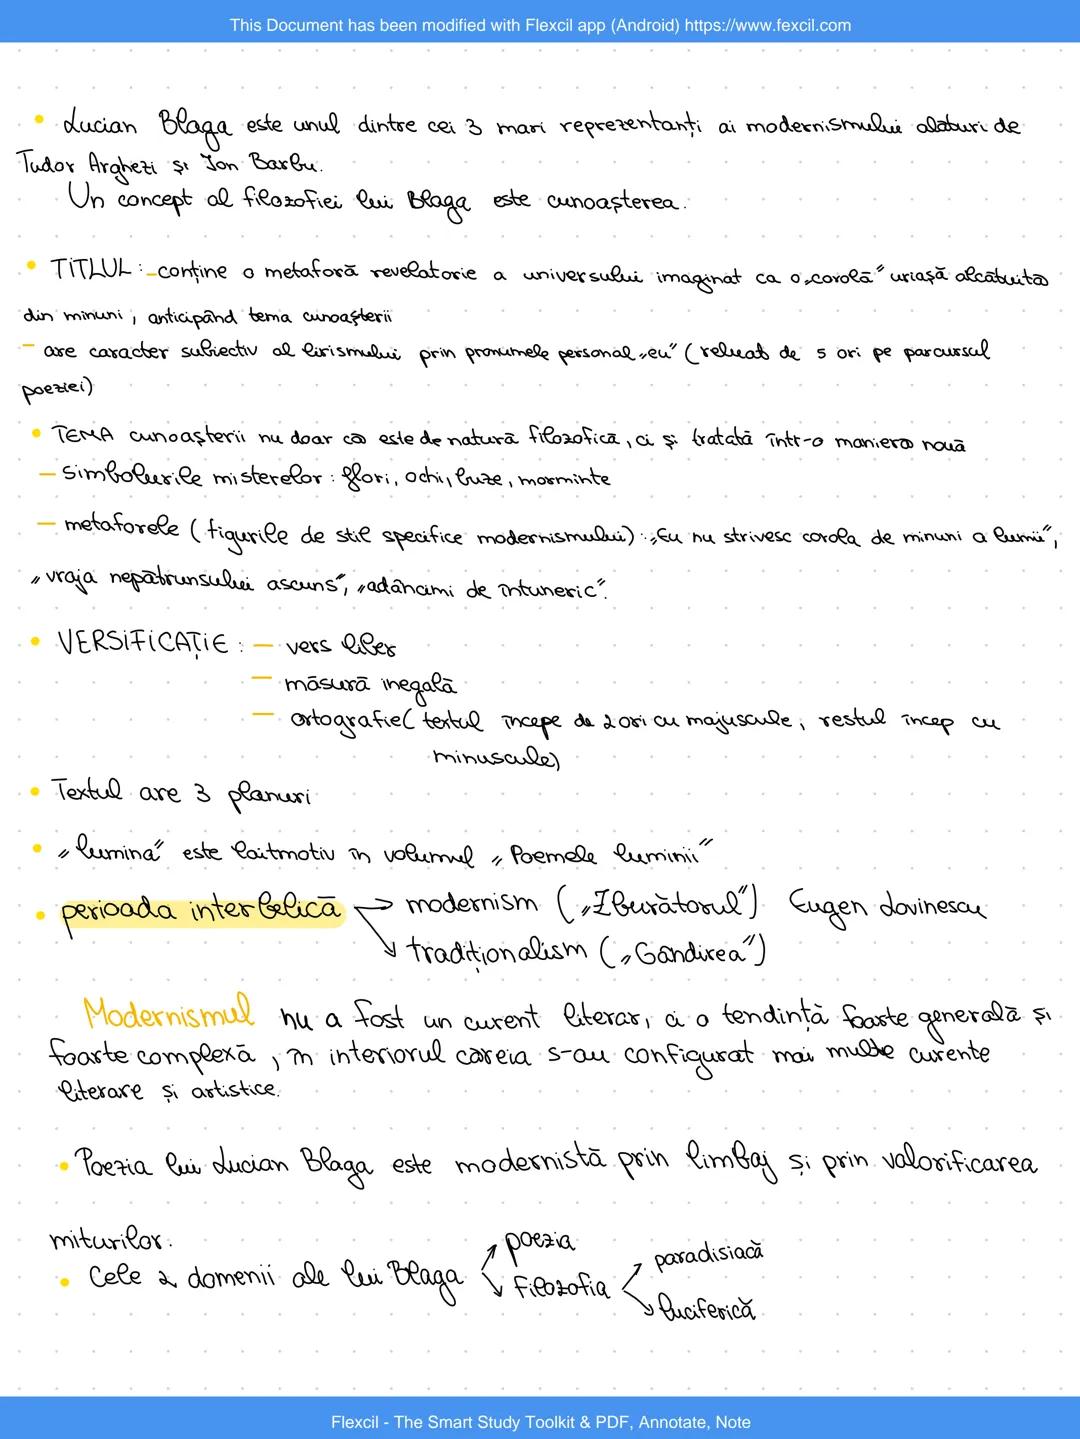 This Document has been modified with Flexcil app (Android) https://www.fexcil.com
• Lucian Blaga este unul dintre cei 3 mari reprezentanți ai modernismului alături de
Tudor Arghezi și Ion Barbu.
Un concept al filozofiei lui Blaga este cunoașterea.
• TITLUL: - conține o metaforă revelatorie a universului imaginat ca o „corolă" uriașă alcătuită
din minuni, anticipând tema cunoașterii
- are caracter subiectiv al lirismului prin pronumele personal „eu" (reluat de 5 ori pe parcursul
poeziei)
• TEMA cunoașterii nu doar că este de natură filozofică, ci și tratată într-o manieră nouă
- simbolurile misterelor: flori, ochi, buze, morminte
- metaforele (figurile de stil specifice modernismului): „Eu nu strivesc corola de minuni a lumii",
„vraja nepătrunsului ascuns", „adâncimi de întuneric".
• VERSIFICAȚIE: - vers liber
- măsură inegală
- ortografie( textul începe de 2 ori cu majuscule, restul încep cu
minuscule)
• Textul are 3 planuri
• „lumina" este laitmotiv în volumul „Poemele luminii"
• perioada interbelică → modernism („Zburătorul") Eugen Lovinescu
↘ tradiționalism („Gândirea")
Modernismul nu a fost un curent literar, ci o tendință foarte generală și
foarte complexă, în interiorul căreia s-au configurat mai multe curente
literare și artistice.
• Poezia lui Lucian Blaga este modernistă prin limbaj și prin valorificarea
miturilor.
• Cele 2 domenii ale lui Blaga ↗ poezia
↘ filozofia ↗ paradisiacă
↘ luciferică
Flexcil - The Smart Study Toolkit & PDF, Annotate, Note